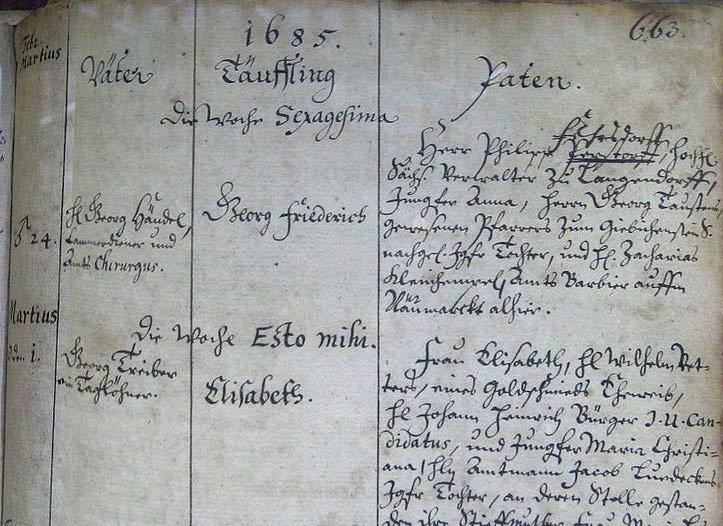 1685.
663.
Febr.
Martius
Väter
Täuffling
Paten.
Die Woche Sexagesima
♂ 24.
H. Georg Händel,
Cammerdiener und
Amts Chirurgus.
Georg Friederich
Herr Philipp Fehrsdorff, Hochfl.
Sächs. Verwalter zu Langendorff,
Jungfer Anna, Herrn Georg Tausten
gewesenen Pfarrers zum Giebichenstein S.
nachgel. Jgfr Tochter, und H. Zacharias
Kleinhempel, Amts Barbier auffm
Näumarckt alhier.
Martius
Die Woche Esto mihi.
den 1.
Georg Treiber
ein Taglöhner.
Elisabeth.
Frau Elisabeth, H. Wilhelm Vet-
ters, eines Goldschmieds Eheweib,
H. Johann Heinrich Bürger J.U. Can-
didatus, und Jungfer Maria Christi-
ana, Hln Amtmann Jacob Lueders
Jgfr Tochter, an deren Stelle gestan-
den ihre Stieffmutter Frau